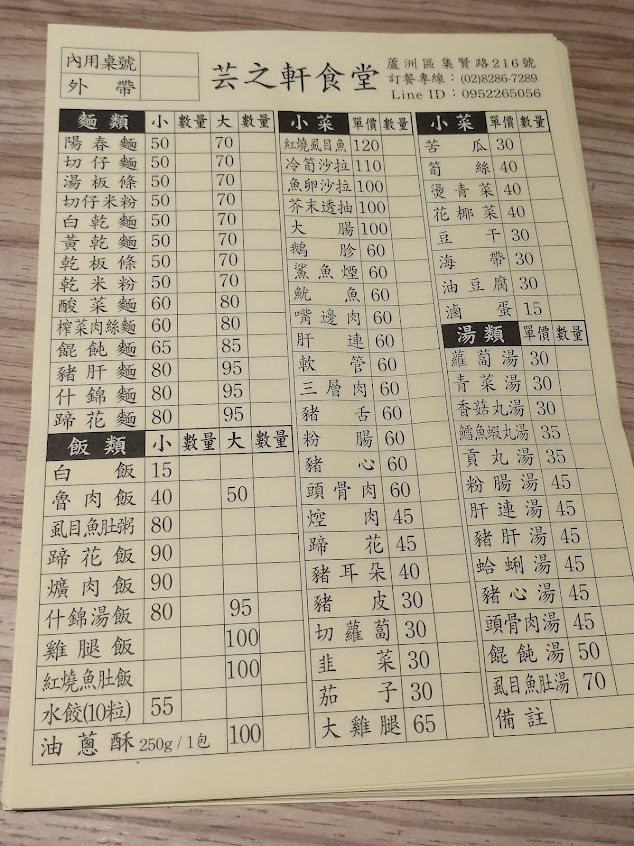 內用桌號
外 帶
芸之軒食堂
蘆洲區集賢路216號
訂餐專線：(02)8286-7289
Line ID：0952265056
麵類 小 數量 大 數量
陽春麵 50 70
切仔麵 50 70
湯板條 50 70
切仔米粉 50 70
白乾麵 50 70
黃乾麵 50 70
乾板條 50 70
乾米粉 50 70
酸菜麵 60 80
榨菜肉絲麵 60 80
餛飩麵 65 85
豬肝麵 80 95
什錦麵 80 95
蹄花麵 80 95
飯類 小 數量 大 數量
白飯 15
魯肉飯 40 50
虱目魚肚粥 80
蹄花飯 90
爌肉飯 90
什錦湯飯 80 95
雞腿飯 100
紅燒魚肚飯 100
水餃(10粒) 55
油蔥酥 250g / 1包 100
小菜 單價 數量
紅燒虱目魚 120
冷筍沙拉 110
魚卵沙拉 100
芥末透抽 100
大腸 100
鵝胗 60
鯊魚煙 60
魷魚 60
嘴邊肉 60
肝連 60
軟管 60
三層肉 60
豬舌 60
粉腸 60
豬心 60
頭骨肉 60
焢肉 45
蹄花 45
豬耳朵 40
豬皮 30
切蘿蔔 30
韭菜 30
茄子 30
大雞腿 65
小菜 單價 數量
苦瓜 30
筍絲 40
燙青菜 40
花椰菜 40
豆干 30
海帶 30
油豆腐 30
滷蛋 15
湯類 單價 數量
蘿蔔湯 30
青菜湯 30
香菇丸湯 30
鱈魚蝦丸湯 35
貢丸湯 35
粉腸湯 45
肝連湯 45
豬肝湯 45
蛤蜊湯 45
豬心湯 45
頭骨肉湯 45
餛飩湯 50
虱目魚肚湯 70
備註